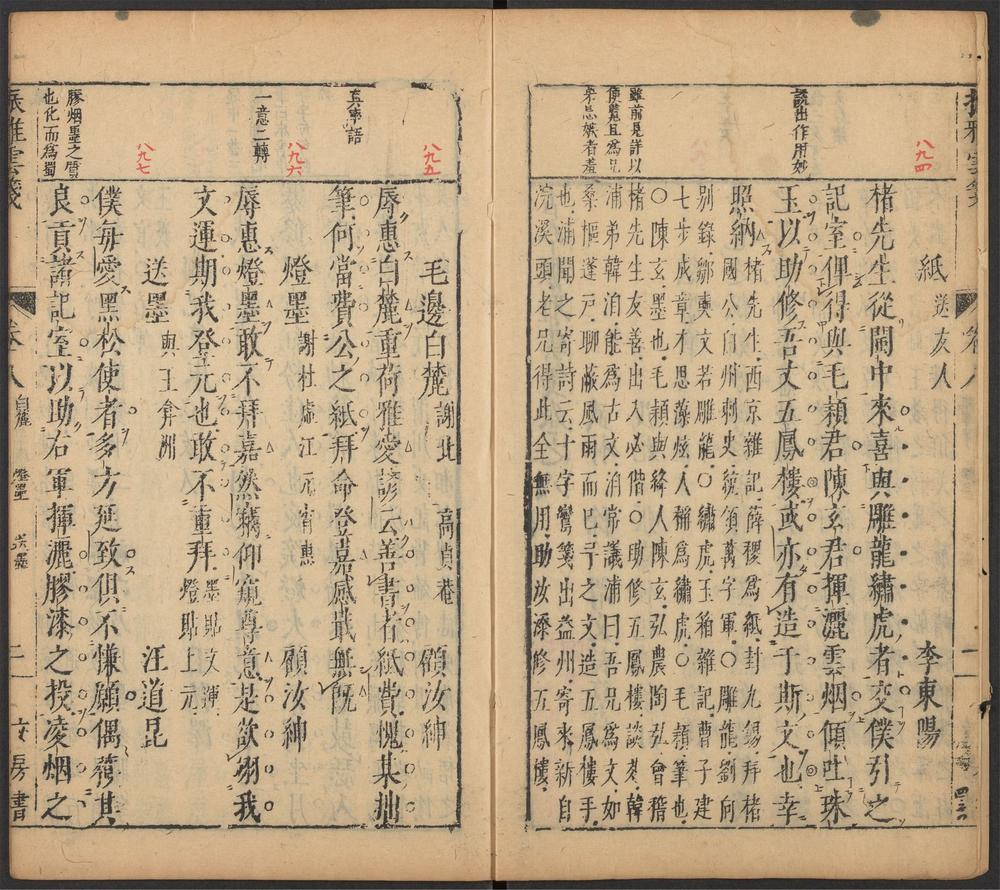 八九四
說出作用妙
雖前見詳以
便覽且爲兄
紙 送友人 李東陽
楮先生從閩中來喜與雕龍繡虎者交僕引之
記室俾得與毛穎君陳玄君揮灑雲烟傾吐珠
玉以助修吾丈五鳳樓或亦有造于斯文也幸
照納 楮先生西京雜記薛稷爲紙封九錫拜楮
國公白州刺史統領萬字軍○雕龍劉向
別錄鄒奭文若雕龍○繡虎玉箱雜記曹子建
七步成章才思藻炫人稱爲繡虎○毛穎筆也
○陳玄墨也毛穎與絳人陳玄弘農陶弘會稽
楮先生友善出入必偕○助修五鳳樓談苑韓
浦弟韓洎能爲古文洎常議浦曰吾兄爲文如
桑樞蓬戸聊蔽風雨而已予之文造五鳳樓手
也浦聞之寄詩云十字鸞箋出益州寄來新自
浣溪頭老兄得此全無用助汝添修五鳳樓
八九五
真率語
八九六
一意二轉
八九七
膠烟墨之質
也化而爲蜀
毛邊白麓 謝 高貞菴 顧汝紳
辱惠白麓重荷雅愛諺云善書者紙費愧某拙
筆何當費公之紙拜命登嘉感戢無既
燈墨 謝杜虛江元宵惠 顧汝紳
辱惠燈墨敢不拜嘉然竊仰窺尊意是欲翊我
文運期我登元也敢不重拜 墨貼文運
燈貼上元
送墨 與王弇洲 汪道昆
僕毎愛黑松使者多方延致俱不慊願偶獲其
良貢諸記室以助右軍揮灑膠漆之投凌烟之
卷十八 白麓 燈墨 送墨 二 文房書